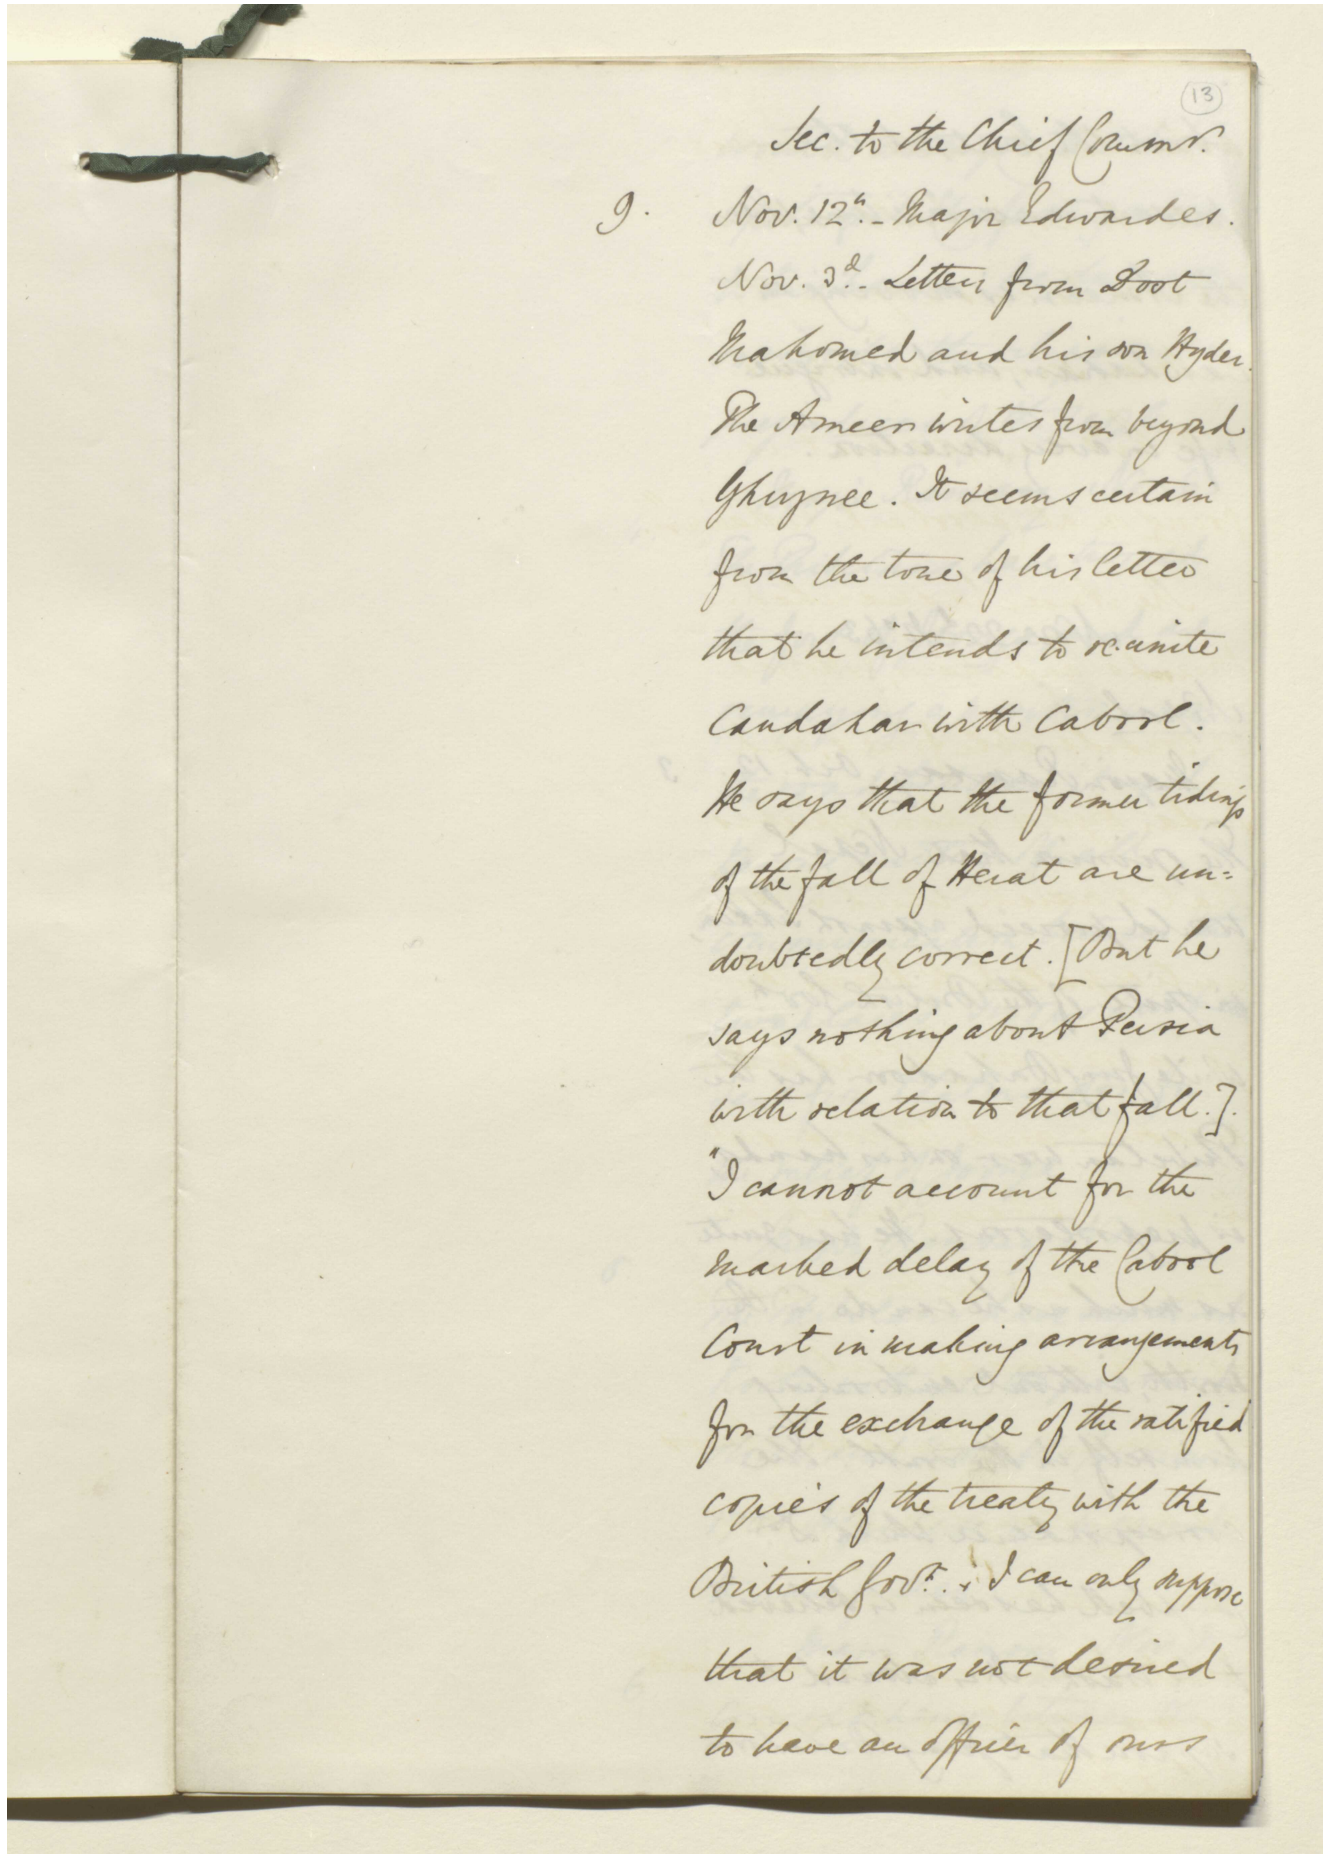 13
Sec. to the Chief Commr.
9. Nov. 12th. - Major Edwardes.
Nov. 3d. - Letters from Dost
Mahomed and his son Hyder.
The Ameer writes from beyond
Ghuznee. It seems certain
from the tone of his letter
that he intends to re-unite
Candahar with Cabool.
He says that the former tidings
of the fall of Herat are un=
doubtedly correct. [But he
says nothing about Persia
with relation to that fall.].
"I cannot account for the
marked delay of the Cabool
Court in making arrangements
for the exchange of the ratified
copies of the treaty with the
British Govt. ; I can only suppose
that it was not desired
to have an officer of ours